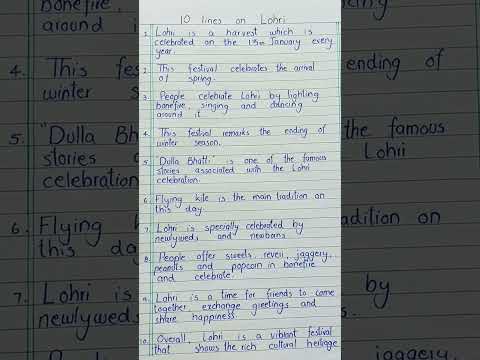 10 lines on Lohri
1. Lohri is a harvest which is
celebrated on the 13th January every
year.
2. This festival celebrates the arrival
of spring.
3. People celebrate Lohri by lighting
bonefire, singing and dancing
around it
4. This festival remarks the ending of
winter season.
5. "Dulla Bhatti" is one of the famous
stories associated with the Lohri
celebration.
6. Flying kite is the main tradition on
this day
7. Lohri is specially celebrated by
newlyweds and newborns
8. People offer sweets, reveri, jaggery,
peanuts and popcorn in bonefire
and celebrate.
9. Lohri is a time for friends to come
together, exchange greetings and
share happiness.
10. Overall, Lohri is a vibrant festival
that shows the rich cultural heritage